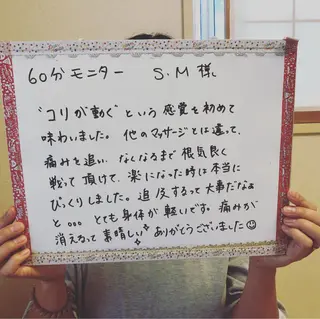 60分モニター S.M 様
"コリが動く"という感覚を初めて
味わいました。他のマッサージとは違って、
痛みを追い、なくなるまで根気良く
戦って頂けて、楽になった時は本当に
びっくりしました。追及するって大事だなぁ
と。。。とても身体が軽いです。痛みが
消えるって素晴しい ありがとうございました☺